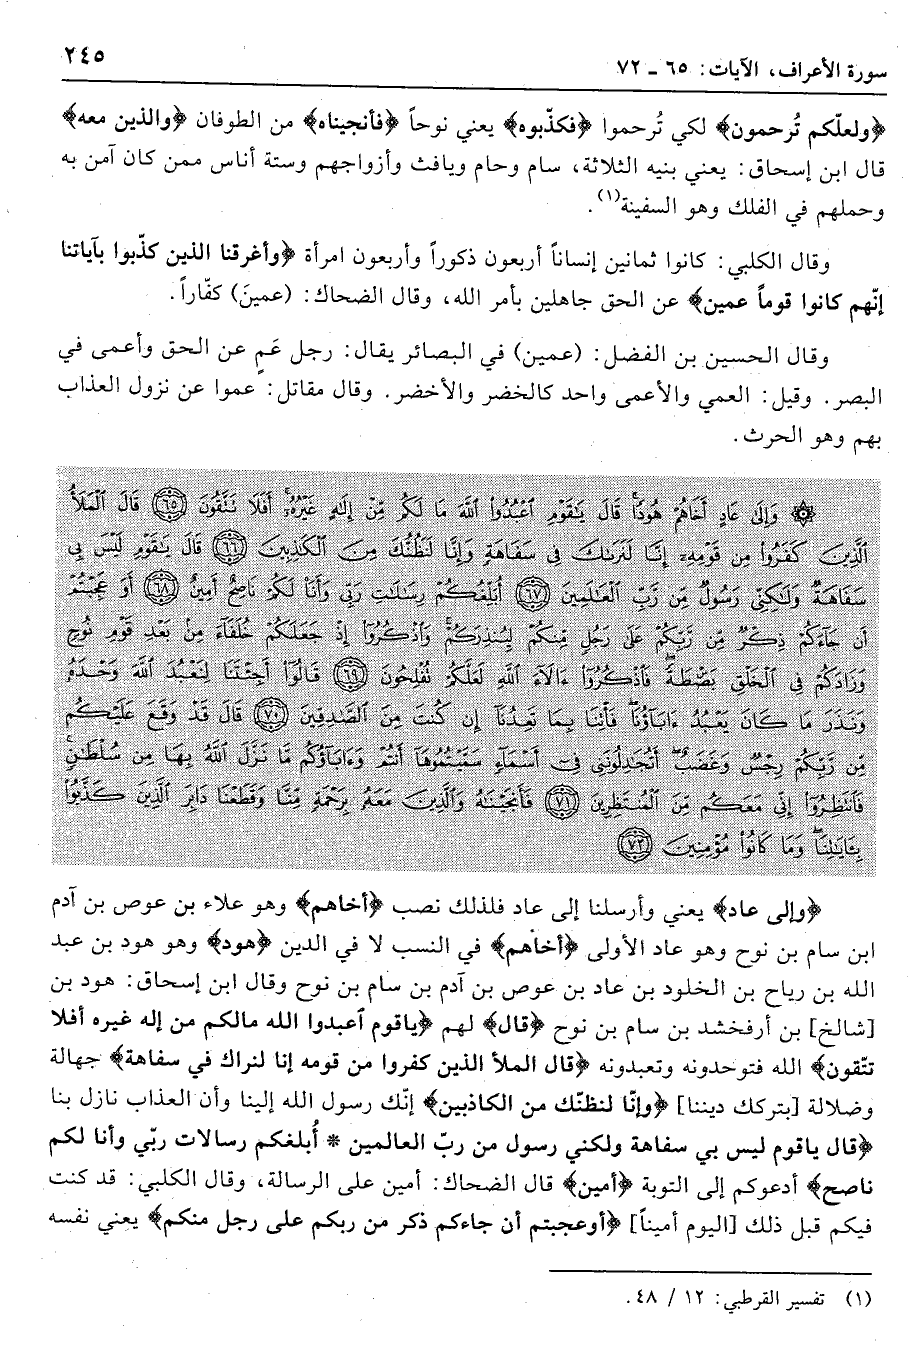 سورة الأعراف، الآيات: ٦٥ ـ ٧٢
٢٤٥
﴿ولعلّكم تُرحمون﴾ لكي تُرحموا ﴿فكذّبوه﴾ يعني نوحاً ﴿فأنجيناه﴾ من الطوفان ﴿والذين معه﴾
قال ابن إسحاق: يعني بنيه الثلاثة، سام وحام ويافث وأزواجهم وستة أناس ممن كان آمن به
وحملهم في الفلك وهو السفينة(١).
وقال الكلبي: كانوا ثمانين إنساناً أربعون ذكوراً وأربعون امرأة ﴿وأغرقنا الذين كذّبوا بآياتنا
إنّهم كانوا قوماً عمين﴾ عن الحق جاهلين بأمر الله، وقال الضحاك: (عمينَ) كفّاراً.
وقال الحسين بن الفضل: (عمين) في البصائر يقال: رجل عَمٍ عن الحق وأعمى في
البصر. وقيل: العمي والأعمى واحد كالخضر والأخضر. وقال مقاتل: عموا عن نزول العذاب
بهم وهو الحرث.
۞ وَإِلَىٰ عَادٍ أَخَاهُمْ هُودًا ۗ قَالَ يَٰقَوْمِ ٱعْبُدُوا۟ ٱللَّهَ مَا لَكُم مِّنْ إِلَٰهٍ غَيْرُهُۥٓ ۚ أَفَلَا تَتَّقُونَ ﴿٦٥﴾ قَالَ ٱلْمَلَأُ
ٱلَّذِينَ كَفَرُوا۟ مِن قَوْمِهِۦٓ إِنَّا لَنَرَىٰكَ فِى سَفَاهَةٍ وَإِنَّا لَنَظُنُّكَ مِنَ ٱلْكَٰذِبِينَ ﴿٦٦﴾ قَالَ يَٰقَوْمِ لَيْسَ بِى
سَفَاهَةٌ وَلَٰكِنِّى رَسُولٌ مِّن رَّبِّ ٱلْعَٰلَمِينَ ﴿٦٧﴾ أُبَلِّغُكُمْ رِسَٰلَٰتِ رَبِّى وَأَنَا۠ لَكُمْ نَاصِحٌ أَمِينٌ ﴿٦٨﴾ أَوَعَجِبْتُمْ
أَن جَآءَكُمْ ذِكْرٌ مِّن رَّبِّكُمْ عَلَىٰ رَجُلٍ مِّنكُمْ لِيُنذِرَكُمْ ۚ وَٱذْكُرُوٓا۟ إِذْ جَعَلَكُمْ خُلَفَآءَ مِنۢ بَعْدِ قَوْمِ نُوحٍ
وَزَادَكُمْ فِى ٱلْخَلْقِ بَصْۜطَةً ۖ فَٱذْكُرُوٓا۟ ءَالَآءَ ٱللَّهِ لَعَلَّكُمْ تُفْلِحُونَ ﴿٦٩﴾ قَالُوٓا۟ أَجِئْتَنَا لِنَعْبُدَ ٱللَّهَ وَحْدَهُۥ
وَنَذَرَ مَا كَانَ يَعْبُدُ ءَابَآؤُنَا ۖ فَأْتِنَا بِمَا تَعِدُنَآ إِن كُنتَ مِنَ ٱلصَّٰدِقِينَ ﴿٧٠﴾ قَالَ قَدْ وَقَعَ عَلَيْكُم
مِّن رَّبِّكُمْ رِجْسٌ وَغَضَبٌ ۖ أَتُجَٰدِلُونَنِى فِىٓ أَسْمَآءٍ سَمَّيْتُمُوهَآ أَنتُمْ وَءَابَآؤُكُم مَّا نَزَّلَ ٱللَّهُ بِهَا مِن سُلْطَٰنٍ ۚ
فَٱنتَظِرُوٓا۟ إِنِّى مَعَكُم مِّنَ ٱلْمُنتَظِرِينَ ﴿٧١﴾ فَأَنجَيْنَٰهُ وَٱلَّذِينَ مَعَهُۥ بِرَحْمَةٍ مِّنَّا وَقَطَعْنَا دَابِرَ ٱلَّذِينَ كَذَّبُوا۟
بِـَٔايَٰتِنَا ۖ وَمَا كَانُوا۟ مُؤْمِنِينَ ﴿٧٢﴾
﴿وإلى عاد﴾ يعني وأرسلنا إلى عاد فلذلك نصب ﴿أخاهم﴾ وهو علاء بن عوص بن آدم
ابن سام بن نوح وهو عاد الأولى ﴿أخاهم﴾ في النسب لا في الدين ﴿هود﴾ وهو هود بن عبد
الله بن رياح بن الخلود بن عاد بن عوص بن آدم بن سام بن نوح وقال ابن إسحاق: هود بن
[شالخ] بن أرفخشد بن سام بن نوح ﴿قال﴾ لهم ﴿ياقوم اعبدوا الله مالكم من إله غيره أفلا
تتّقون﴾ الله فتوحدونه وتعبدونه ﴿قال الملأ الذين كفروا من قومه إنا لنراك في سفاهة﴾ جهالة
وضلالة [بتركك ديننا] ﴿وإنّا لنظنّك من الكاذبين﴾ إنّك رسول الله إلينا وأن العذاب نازل بنا
﴿قال ياقوم ليس بي سفاهة ولكني رسول من ربّ العالمين * أُبلغكم رسالات ربّي وأنا لكم
ناصح﴾ أدعوكم إلى التوبة ﴿أمين﴾ قال الضحاك: أمين على الرسالة، وقال الكلبي: قد كنت
فيكم قبل ذلك [اليوم أميناً] ﴿أوعجبتم أن جاءكم ذكر من ربكم على رجل منكم﴾ يعني نفسه
(١) تفسير القرطبي: ١٢ / ٤٨.